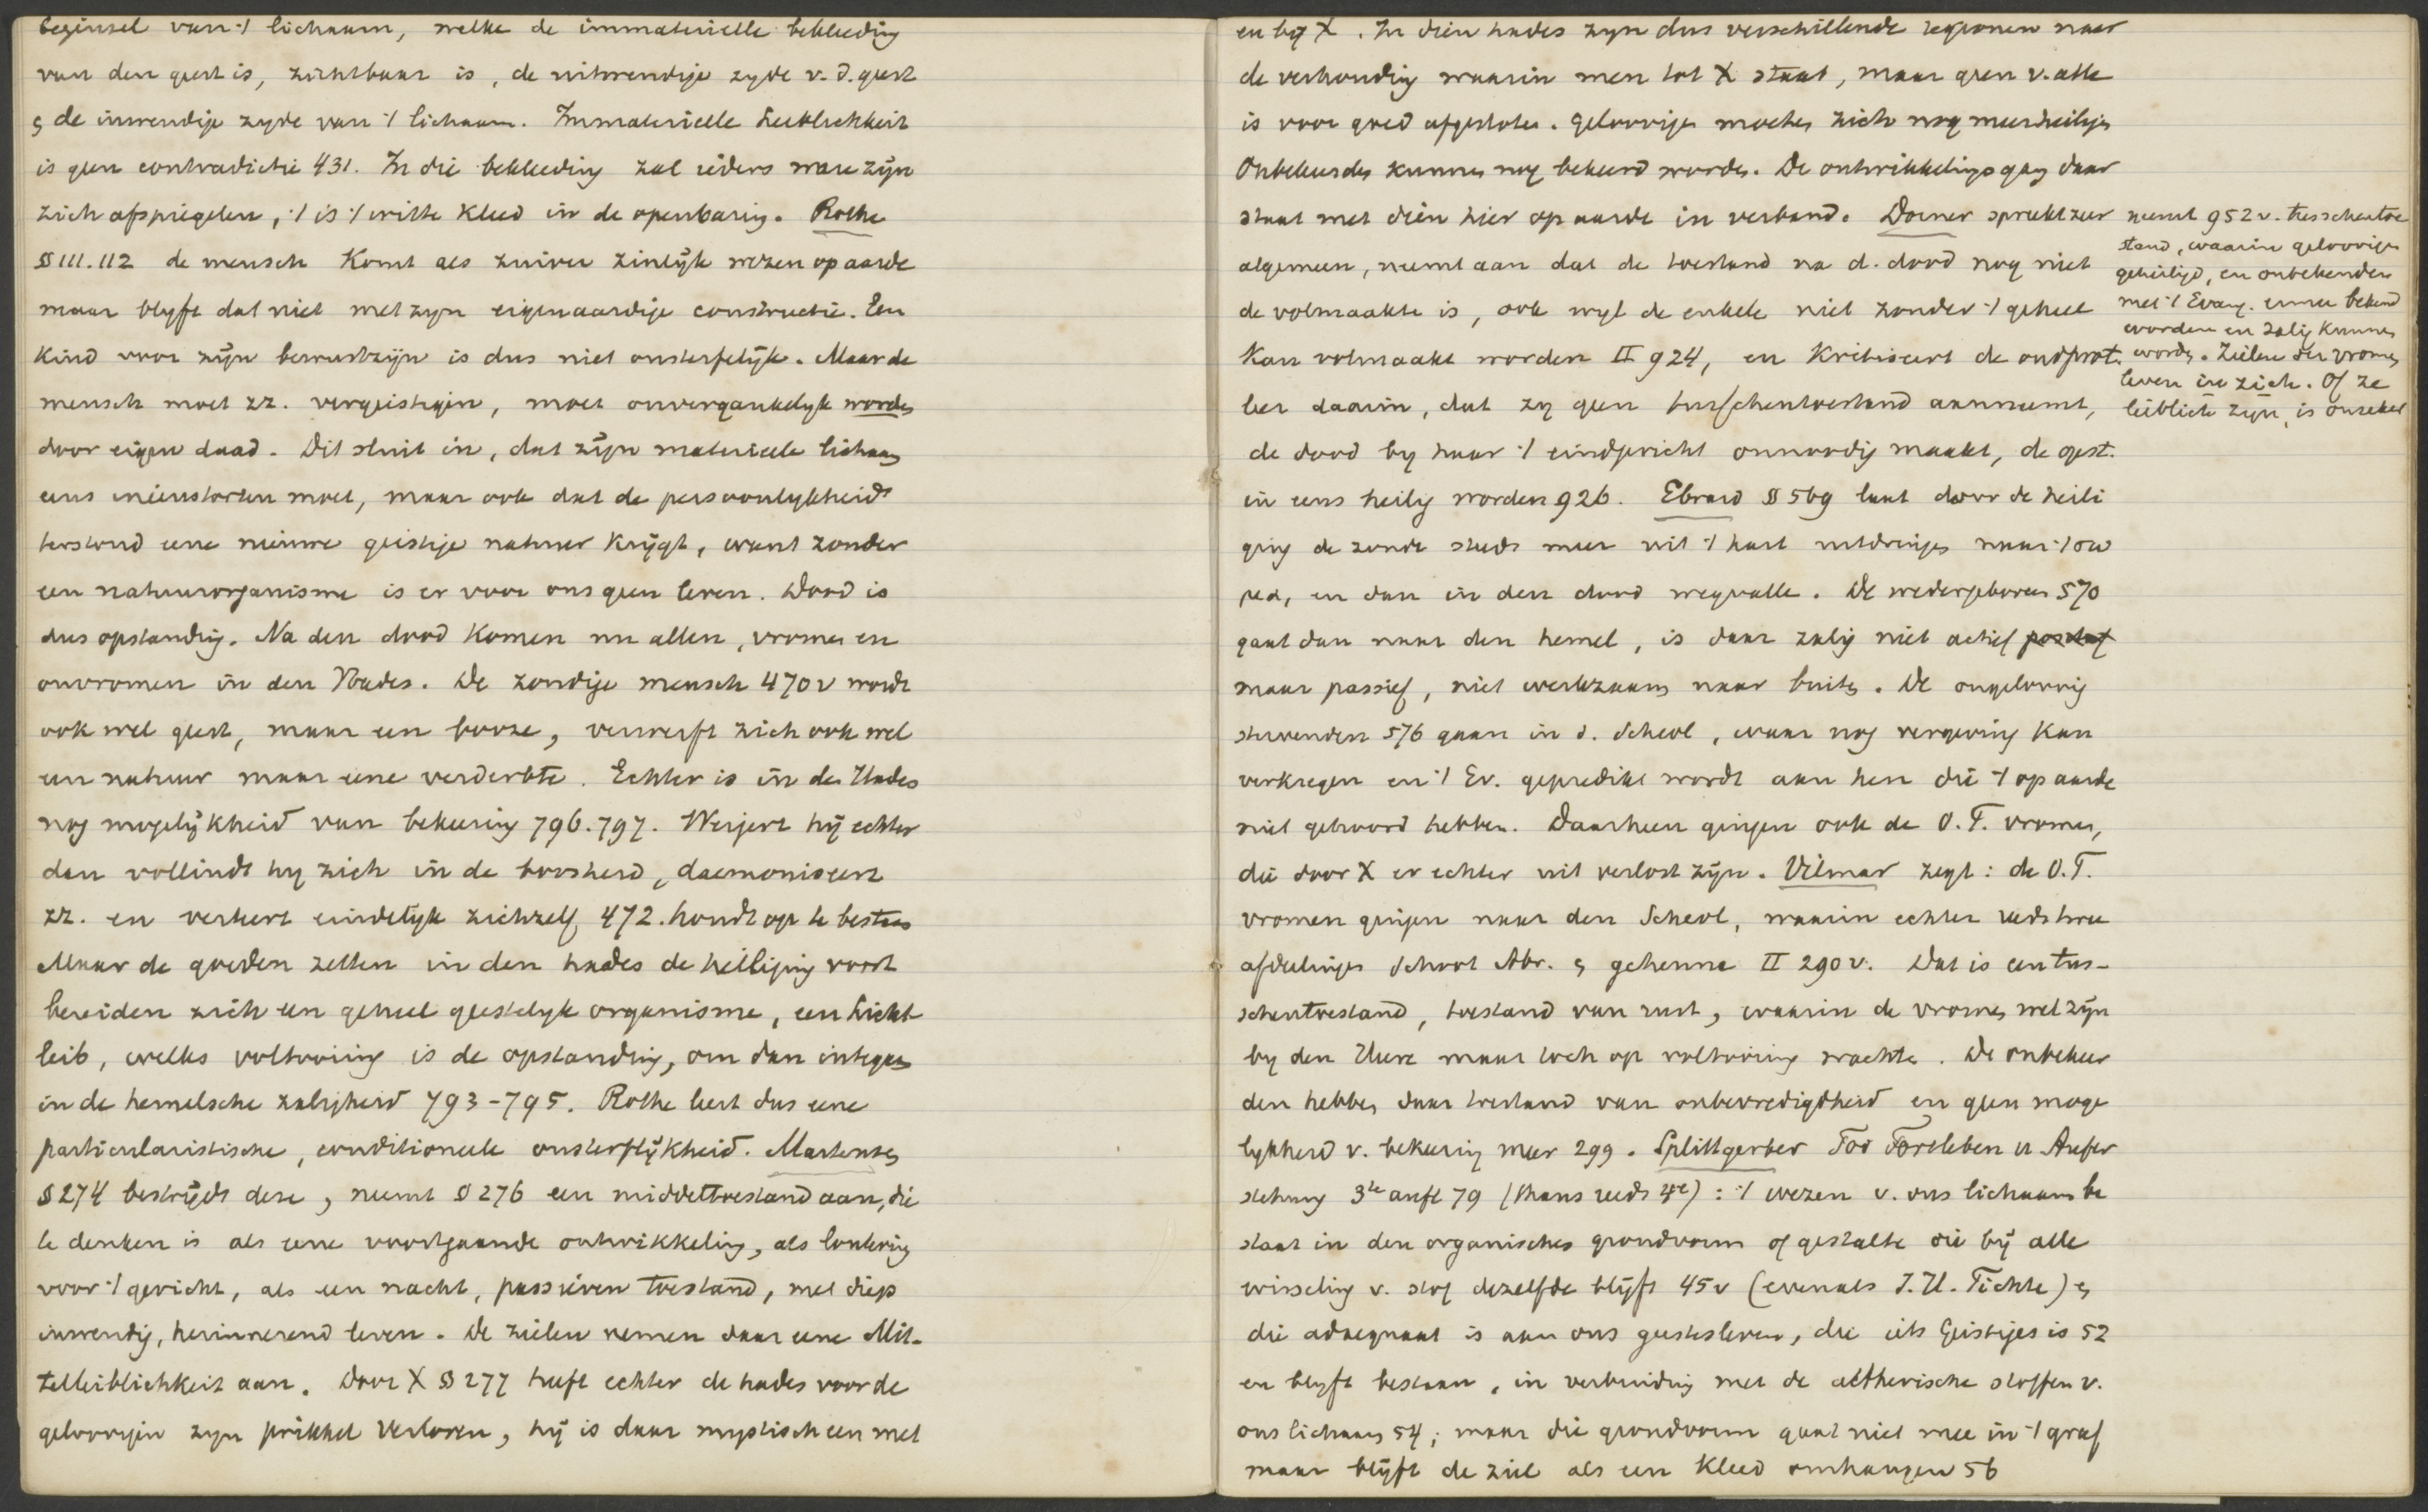 beginsel van 't lichaam, welke de immaterielle bekleeding
van den geest is, zichtbaar is, de uitwendige zyde v. d. geest
& de inwendige zyde van 't lichaam. Immaterielle Leiblichkeit
is geen contradictie 431. In die bekleeding zal ieders ware zijn
zich afspiegelen, 't is 't witte kleed in de openbaring. Rothe
§§ 111.112 de mensch komt als zuiver zinlijk wezen op aarde
maar blyft dat niet met zyn eigenaardige constructie. Een
kind voor zijn bewustzijn is dus niet onsterfelijk. Maar de
mensch moet zz. vergeestigen, moet onvergankelyk worden
door eigen daad. Dit sluit in, dat zijn materieele lichaam
eens ineenstorten moet, maar ook dat de persoonlykheid
terstond eene nieuwe geestige natuur krijgt, want zonder
een natuurorganisme is er voor ons geen leven. Dood is
dus opstanding. Na den dood komen nu allen, vromen en
onvromen in den Hades. De zondige mensch 470v wordt
ook wel geest, maar een booze, verwerft zich ook wel
een natuur maar eene verderbte. Echter is in den Hades
nog mogelijkheid van bekeering 796.797. Weigert hij echter
dan vollindt hy zich in de boosheid, daemoniseert
zz. en verteert eindelyk zichzelf, 472. houdt op te bestaan
Maar de goeden zetten in den hades de heiliging voort
bereiden zich een geheel geestelyk organisme, een Licht
leib, welks voltooiing is de opstanding, om dan integaan
in de hemelsche zaligheid 793-795. Rothe leert dus eene
particularistische, conditioneele onsterflijkheid. Martensen
§ 274 bestrijdt deze, neemt § 276 een middeltoestand aan, die
te denken is als eene voortgaande ontwikkeling, als loutering
voor 't gericht, als een nacht, passieven toestand, met diep
inwendig, herinnerend leven. De zielen nemen daar eene Mit-
telleiblichkeit aan. Door X §§ 277 heeft echter de hades voor de
geloovigen zyn prikkel verloren, hij is daar mystisch een met
en bij X. In dien hades zyn dus verschillende regionen naar
de verhouding waarin men tot X staat, maar geen v. alle
is voor goed afgesloten. Geloovigen moeten zich nog meer heiligen
Onbekeerden kunnen nog bekeerd worden. De ontwikkelingsgang daar
staat met dien hier op aarde in verband. Dorner spreekt zeer
algemeen, neemt aan dat de toestand na d. dood nog niet
de volmaakte is, ook wyl de enkele niet zonder 't geheel
kan volmaakt worden II 924, en kritiseert de oudprot.
leer daarin, dat zy geen tusschentoestand aanneemt,
de dood by haar 't eindgericht onnoodig maakt, de gest.
in eens heilig worden 926. Ebrard §§ 569 laat door de heili
ging de zonde steeds meer uit 't hart uitdringen naar 't σω
μα, en dan in den dood wegvalle. De wedergeboren 570
gaat dan naar den hemel, is daar zalig niet actief
maar passief, niet werkzaam naar buiten. De ongeloovig
stervenden 576 gaan in d. Scheol, waar nog vergeving kan
verkregen en 't Ev. gepredikt wordt aan hen die 't op aarde
niet gehoord hebben. Daarheen gingen ook de O.T. vromen,
die door X er echter uit verlost zijn. Vilmar zegt: de O.T.
vromen gingen naar den Scheol, waarin echter reeds twee
afdeelingen schoot Abr. & gehenna II 290v. Dat is een tus-
schentoestand, toestand van rust, waarin de vromen wel zijn
by den Heere maar toch op voltooiing wachten. De onbekeer
den hebben daar toestand van onbevredigdheid en geen moge
lykheid v. bekeering meer 299. Splittgerber Tod Fortleben u Aufer
stehung 3te aufl 79 (thans reeds 4e): 't wezen v. ons lichaam be
staat in den organischen grondvorm of gestalte die bij alle
wisseling v. stof dezelfde blijft 45v (evenals I.H. Fichte) &
die adaequaat is aan ons geestesleven, die iets Geistiges is 52
en blyft bestaan, in verbinding met de aetherische stoffen v.
ons lichaam 54; maar die grondvorm gaat niet mee in 't graf
maar blijft de ziel als een kleed omhangen 56
neemt 952v. tusschentoe
stand, waarin geloovigen
geheiligd, en onbekenden
met 't Evang. ermee bekend
worden en zalig kunnen
worden. Zielen der vromen
leven in zich. Of ze
leiblich zijn, is onzeker